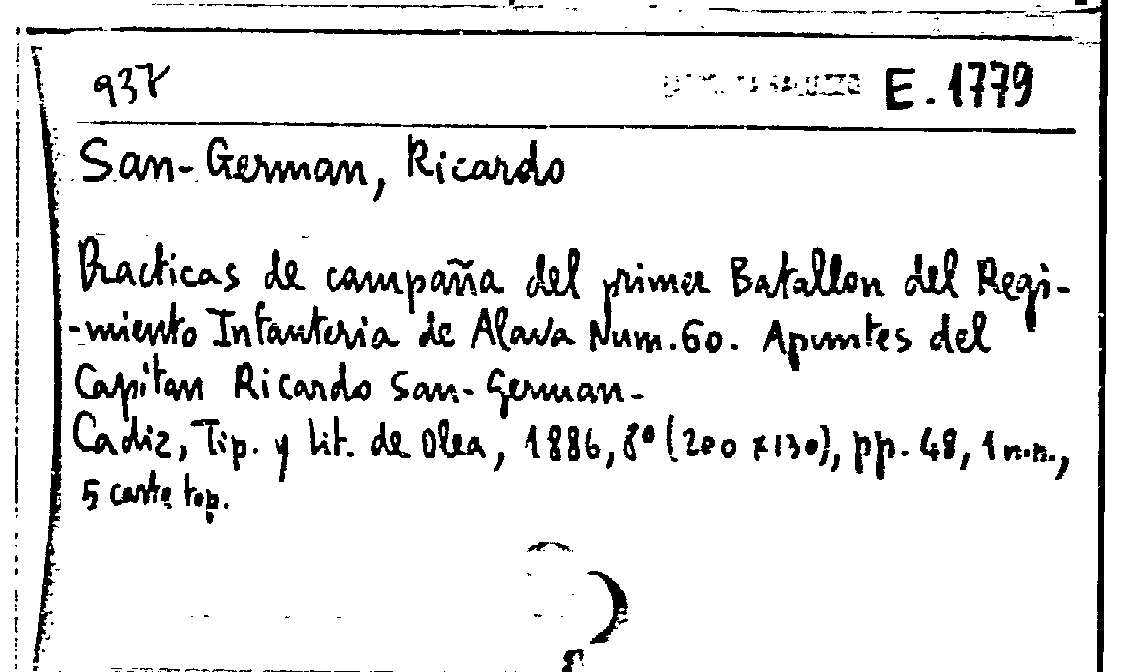 937 E.1779
San-German, Ricardo
Practicas de campaña del primer Batallon del Regi-
-miento Infanteria de Alava Num. 60. Apuntes del
Capitan Ricardo San-German-
Cadiz, Tip. y Lit. de Olea, 1886, 8º (200 x 130), pp. 48, 1 n.n.,
5 carte top.